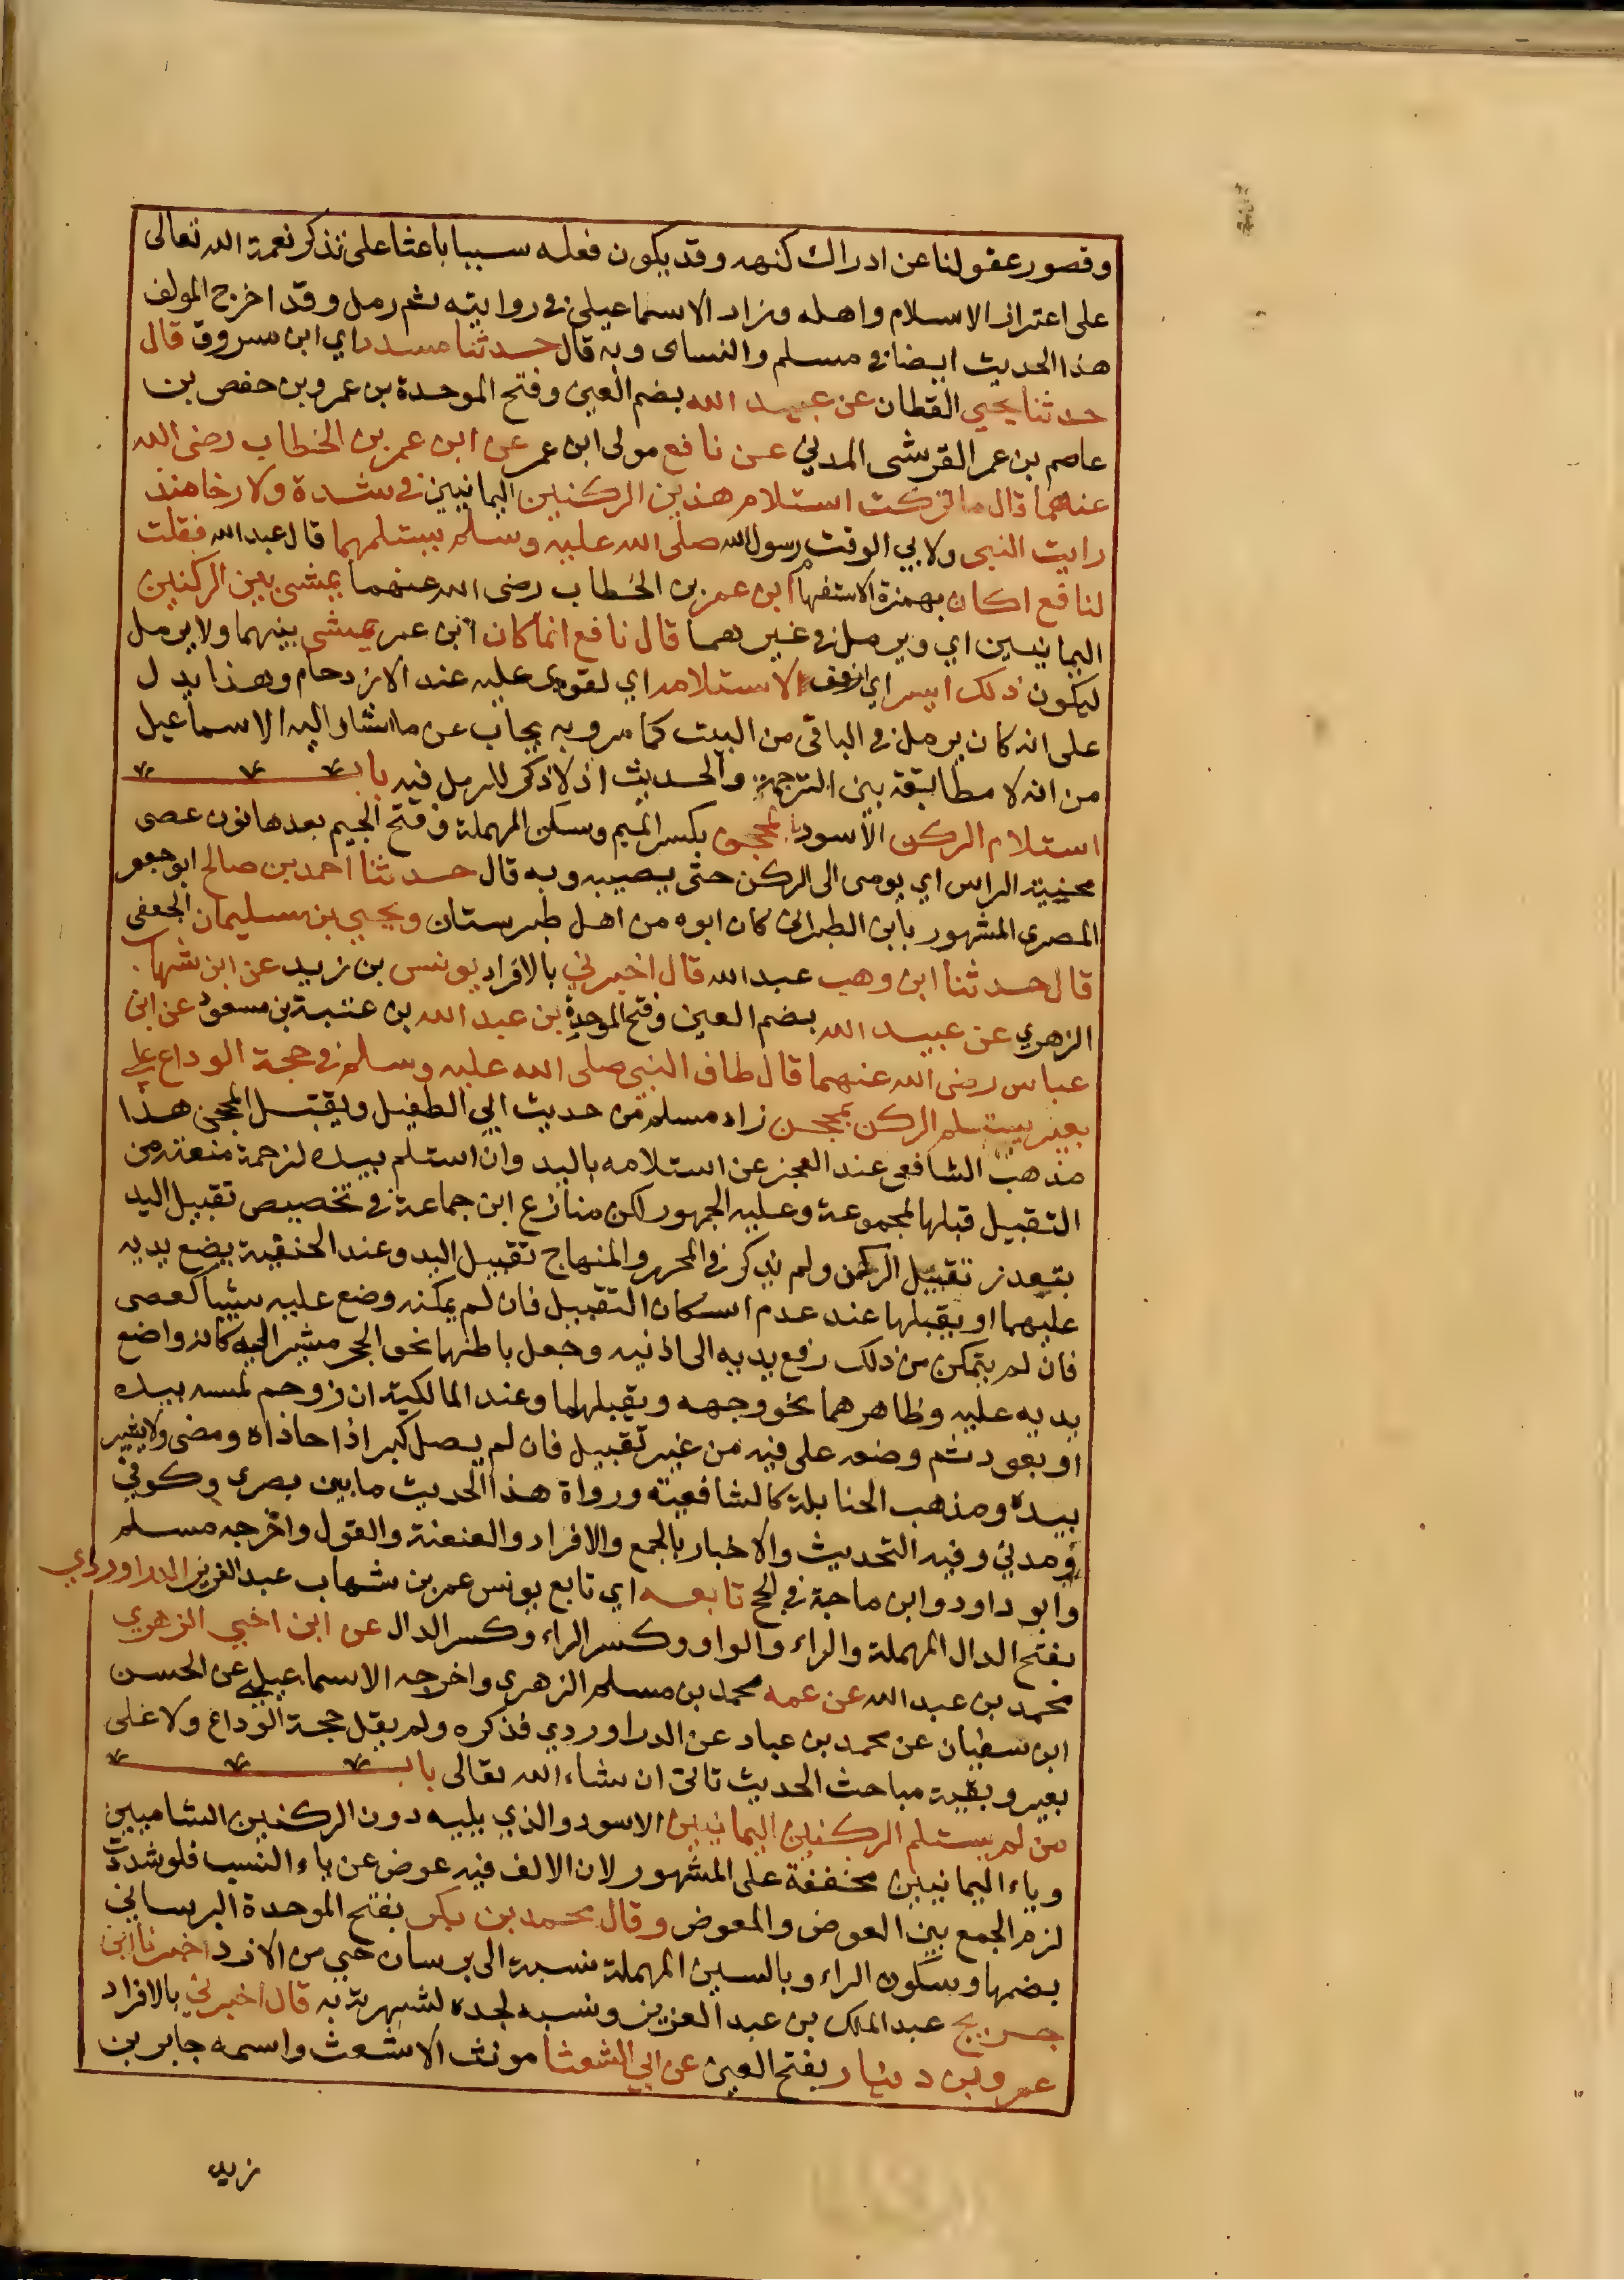 وقصور عقولنا عن ادراك كنهه وقد يكون فعله سببا باعثا على تذكر نعمة الله تعالى
على اعتزاز الاسلام واهله وزاد الاسماعيلي في روايته ثم رمل وقد اخرج المولف
هذا الحديث ايضا في مسلم والنساى وبه قال حدثنا مسدد اي ابن سروق قال
حدثنا يحيي القطان عن عبيد الله بضم العين وفتح الموحدة بن عمرو بن حفص بن
عاصم بن عمر القرشى المدني عن نافع مولى ابن عمر عن ابن عمر بن الخطاب رضى الله
عنهما قال ما تركت استلام هذين الركنين اليمانيين في شدة ولا رخا منذ
رايت النبى ولابي الوقت رسول الله صلى الله عليه وسلم يستلمهما قال عبد الله فقلت
لنافع اكان بهمزة الاستفهام ابن عمر بن الخطاب رضى الله عنهما يمشى بين الركنين
اليمانيين اي ويرمل في غيرهما قال نافع انما كان ابن عمر يمشى بينهما ولا يرمل
ليكون ذلك ايسر اي ارفق الاستلامه اي لقوى عليه عند الازدحام وهذا يدل
على انه كان يرمل في الباقى من البيت كما مر وبه يجاب عن ما اشار اليه الاسماعيل
من انه لا مطابقة بين الترجمة والحديث اذ لا ذكر للرمل فيه باب
استلام الركن الاسود بالمحجن بكسر الميم وسكن المهملة وفتح الجيم بعدها نون عصى
محنية الراس اي يومى الى الركن حتى يصيبه وبه قال حدثنا احمد بن صالح ابو جعفر
المصرى المشهور بابن الطبرانى كان ابوه من اهل طبرستان ويحيي بن سليمان الجعفى
قال حدثنا ابن وهب عبد الله قال اخبرني بالافراد يونس بن زيد عن ابن شهاب
الزهري عن عبيد الله بضم العين وفتح الموحدة بن عبد الله بن عتبة بن مسعود عن ابن
عباس رضى الله عنهما قال طاف النبى صلى الله عليه وسلم في حجة الوداع على
بعير يستلم الركن بمحجن زاد مسلم من حديث ابي الطفيل ويقبل المحجن هذا
مذهب الشافعى عند العجز عن استلامه باليد وان استلم بيده لزحمة منعته من
التقبيل قبلها لمجموعة وعليه الجمهور لكن منازع ابن جماعة في تخصيص تقبيل اليد
بتعذر تقبيل الركن ولم يذكر في المحرر والمنهاج تقبيل اليد وعند الحنفية يضع يديه
عليهما او يقبلها عند عدم اسكان التقبيل فان لم يمكنه وضع عليه شيا كعصى
فان لم يتمكن من ذلك رفع يديه الى اذنيه وجعل باطنها نحو الحجر مشيرا اليه كانه واضع
يديه عليه وظاهرهما نحو وجهه ويقبلهما وعند المالكية ان زوحم لمسه بيده
او بعود ثم وضعه على فيه من غير تقبيل فان لم يصل كبر اذا حاذاه ومضى ولا يشير
بيده ومذهب الحنابلة كالشافعية ورواة هذا الحديث ما بين بصرى وكوفي
ومدني وفيه التحديث والاخبار بالجمع والافراد والعنعنة والقول واخرجه مسلم
وابو داود وابن ماجة في الحج تابعه اي تابع يونس عمر بن شهاب عبد العزيز الدراوردي
بفتح الدال المهملة والراء والواو وكسر الراء وكسر الدال عن ابن اخي الزهري
محمد بن عبد الله عن عمه محمد بن مسلم الزهرى واخرجه الاسماعيلي عن الحسن
ابن سفيان عن محمد بن عباد عن الدراوردي فذكره ولم يقل حجة الوداع ولا على
بعير وبقية مباحث الحديث تاتى ان شاء الله تعالى باب
من لم يستلم الركنين اليمانيين الاسود والذي يليه دون الركنين الشاميين
وياء اليمانيين مخففة على المشهور لان الالف فيه عوض عن ياء النسب فلو شددت
لزم الجمع بين العوض والمعوض وقال محمد بن بكر بفتح الموحدة البرساني
بضمها وسكون الراء وبالسين المهملة نسبة الى برسان حي من الازد اخبرنا ابن
جريج عبد الملك بن عبد العزيز ونسبه لجده لشهرته به قال اخبرني بالافراد
عمرو بن دينار بفتح العين عن ابي الشعثا مونث الاشعث واسمه جابر بن
زيد